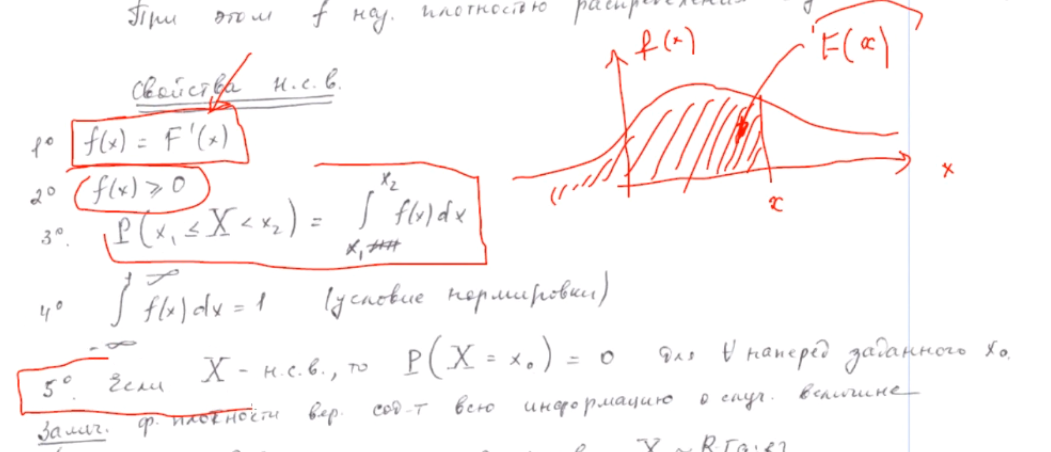 При этом f наз. плотностью распределения
f(x)
F(x)
Свойства н.с.в.
1° f(x) = F'(x)
2° f(x) ⩾ 0
3°. P(x₁ ≤ X < x₂) = ∫ₓ₁^x₂ f(x)dx
x
x
4° ∫₋∞^+∞ f(x)dx = 1 (условие нормировки)
5°. Если X - н.с.в., то P(X = x₀) = 0 для ∀ наперед заданного x₀.
Замеч. ф. плотности вер. сод-т всю информацию о случ. величине
X ~ R[a;b]